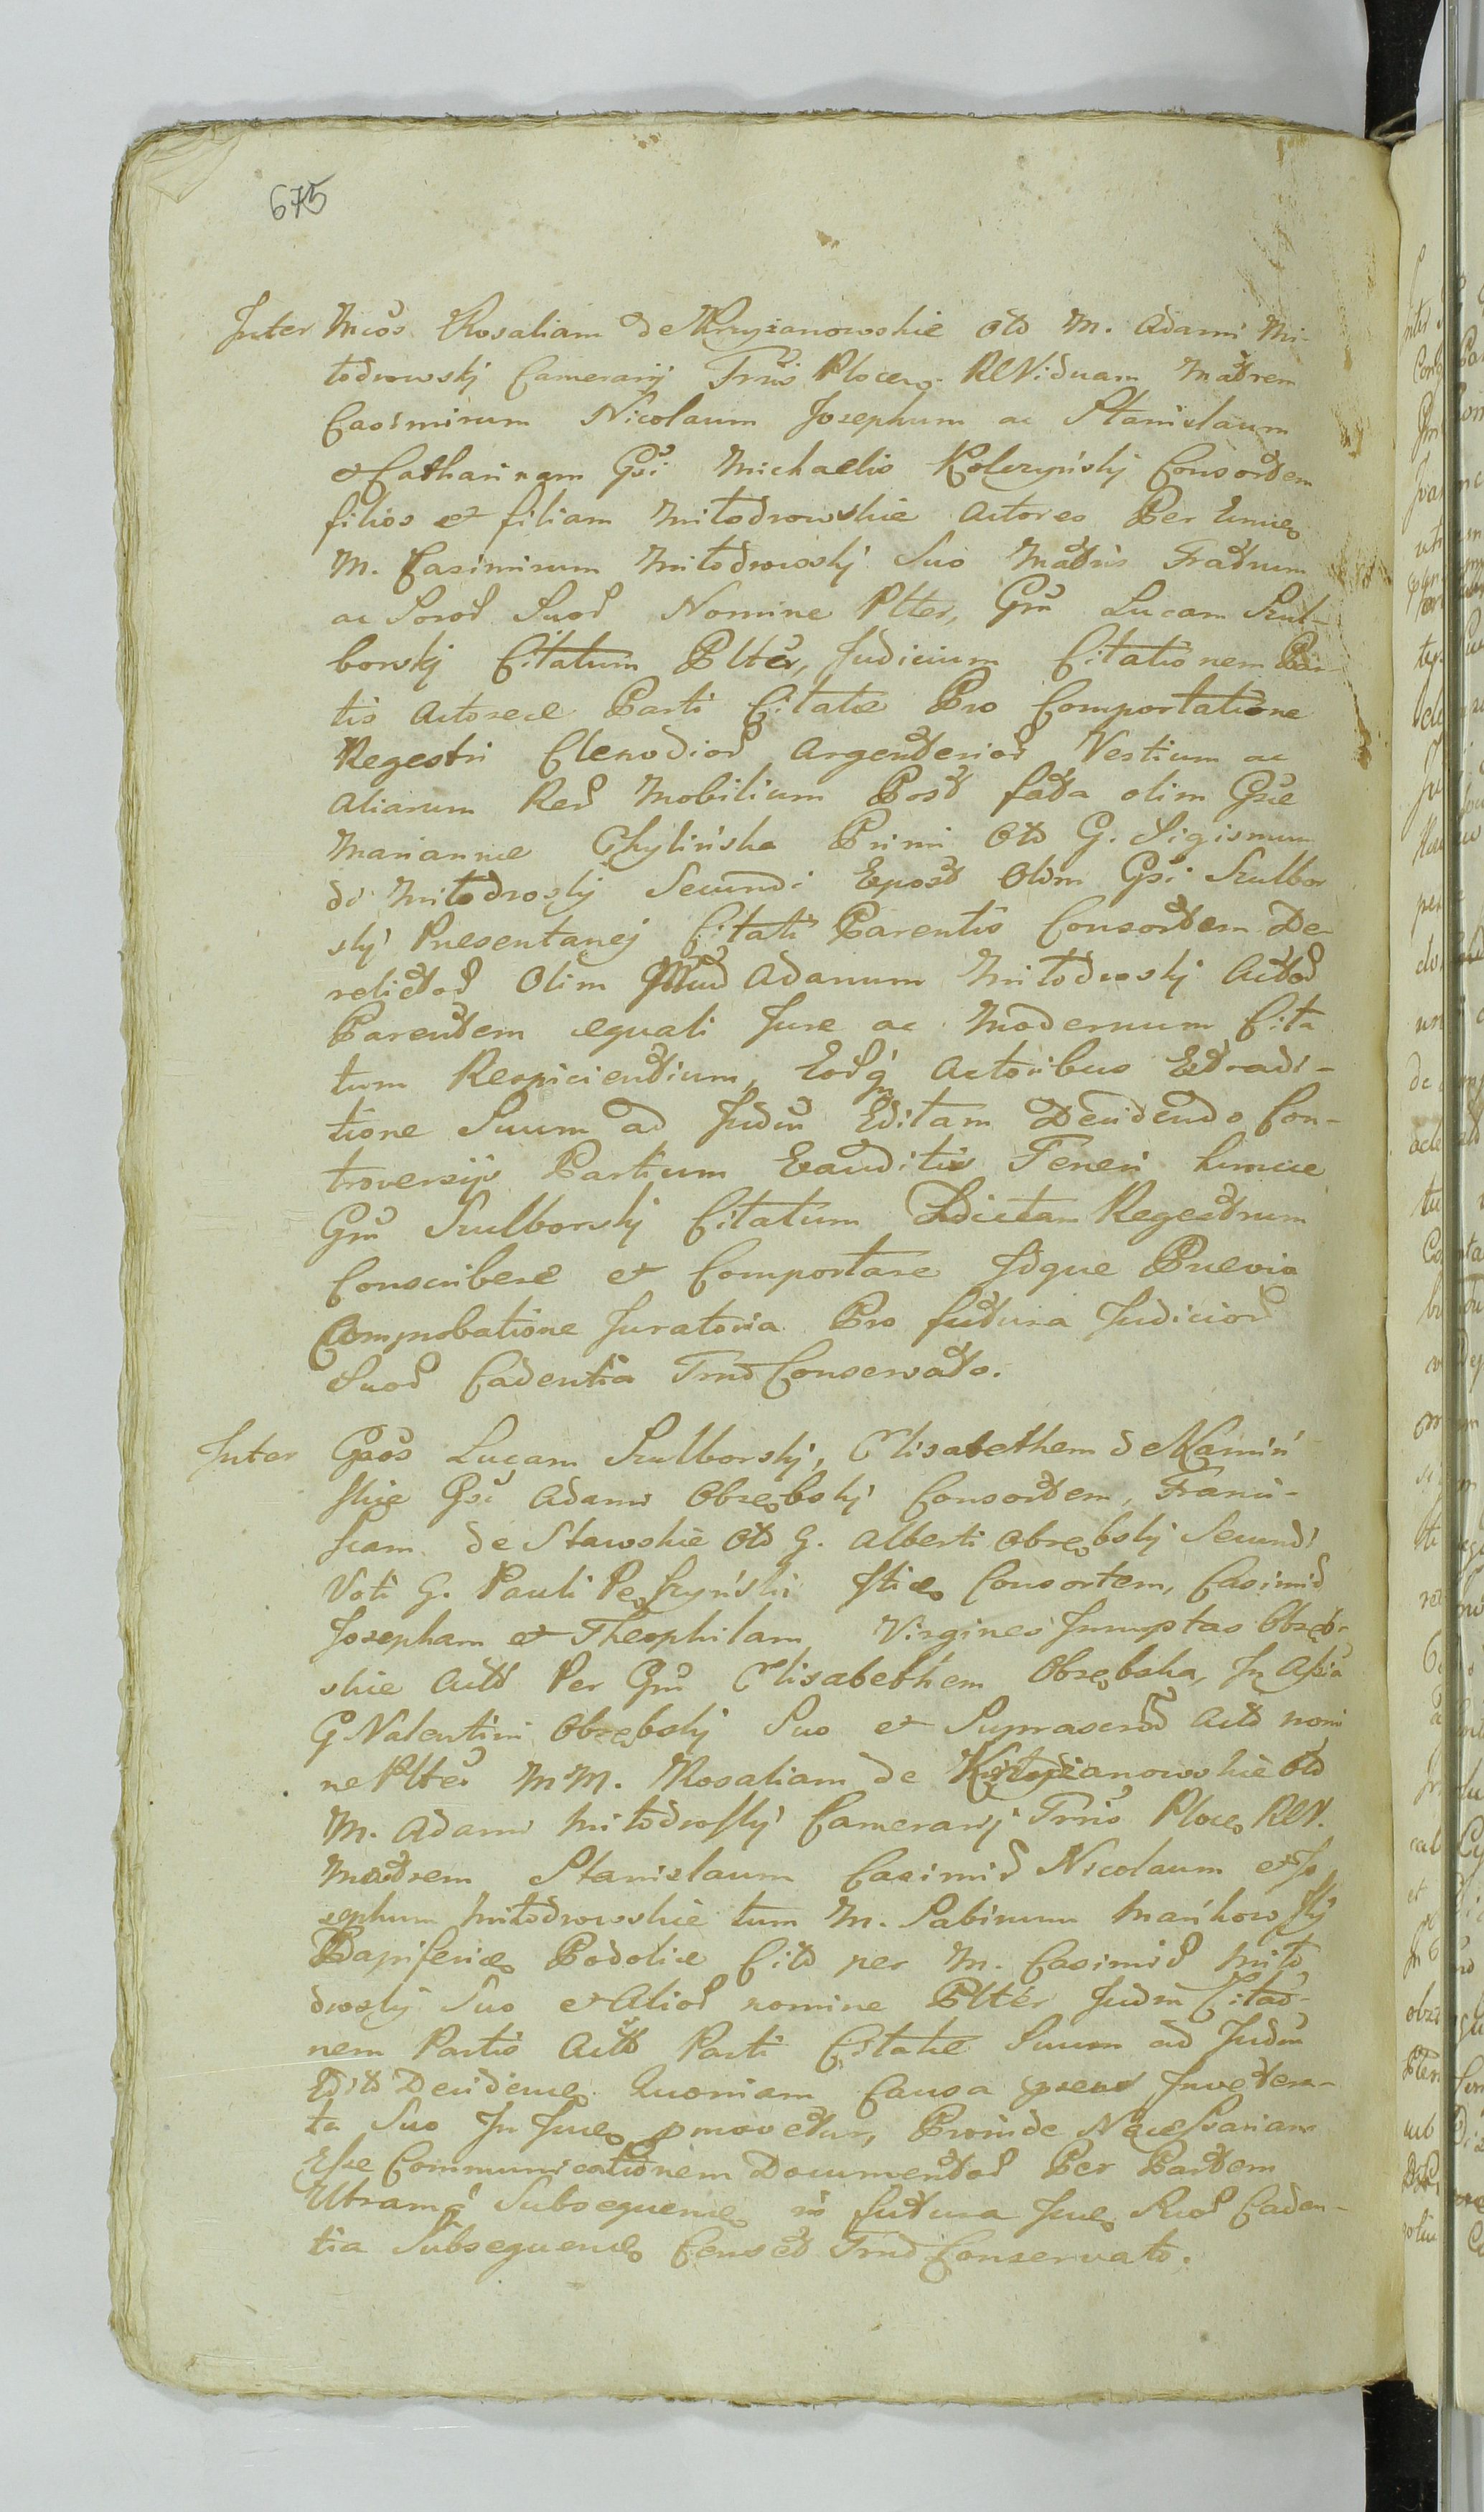 675
Inter Mcos Rosaliam de Krzyżanowskie Old M. Adami Mi-
łodrowskj Camerarij Trris Plocen. Rel Viduam Matrem
Casimirum Nicolaum Josephum ac Stanislaum
et Catharinam Gsi Michaelis Kolczyńskj Consortem
filios et filiam Miłodrowskie Actores Per
M. Casimirum Miłodrowskj Suo Matris Fratrum
ac Soror Suor Nomine Plter, Gm Lucam Szul-
borskj Citatum Plter, Judicium Citationem Par-
tis Actoreae Parti Citatae Pro Comportatione
Regestri Clenodior Argenterior Vestium ac
Aliarum Rer Mobilium Post fata olim Gsae
Mariannae Chylińska Primi Old G. Sigismun
di Miłodroskj Secundi Epost Olim Gsi Szulbor
skj Presentanej Citati Parentis Consortem De-
relictor Olim Adamum Miłodroskj Actor
Parentem aequali Jure ac Modernum Cita
tum Respicientium, Eosq Actoribus Extradi-
tione Suum ad Judm Editam Decidendo Con-
troversijs Partium Exauditis Teneri
Gm Szulborskj Citatum Regestrum
Conscribere et Comportare Idque Praevia
Comprobatione Juratoria Pro futura Judicior
Suor Cadentia Trnd Conservato.
Inter Gsos Lucam Szulborskj, Elisabethem de Kamiń
skie Gsi Adami Obrębskj Consortem, Franci-
scam de Stawskie Old G. Alberti Obrębskj Secundi
Voti G. Pauli Consortem, Casimir
Josepham et Theophilam Virgines Innuptas Obręb-
skie Actd Per Gm Elisabethem Obrębska, In Assia
G. Valentini Obrębskj Suo et Suprascrd Actd nomi
ne Plter MM. Rosaliam de Krzyżanowskie Old
M. Adami Miłodroskj Camerarij Trris Ploce Rel V.
Matrem Stanislaum Casimir Nicolaum et Jo
sephum Miłodrowskie tum M. Sabinum Mańkowskj
Dapiferu Podoliae Citd per M. Casimir Miło
droskj Suo et Alior nomine Plter Judm Citao-
nem Partis Actd Parti Citatae Suum ad Judm
Editd Decidendo Quoniam Causa Invetera-
ta Suo In promovetur, Proinde Necessariam
Esse Communicationem Documentor Per Partem
Utramq Subsequen in futura Suor Caden-
tia Subsequen Censet Trnd Conservato.